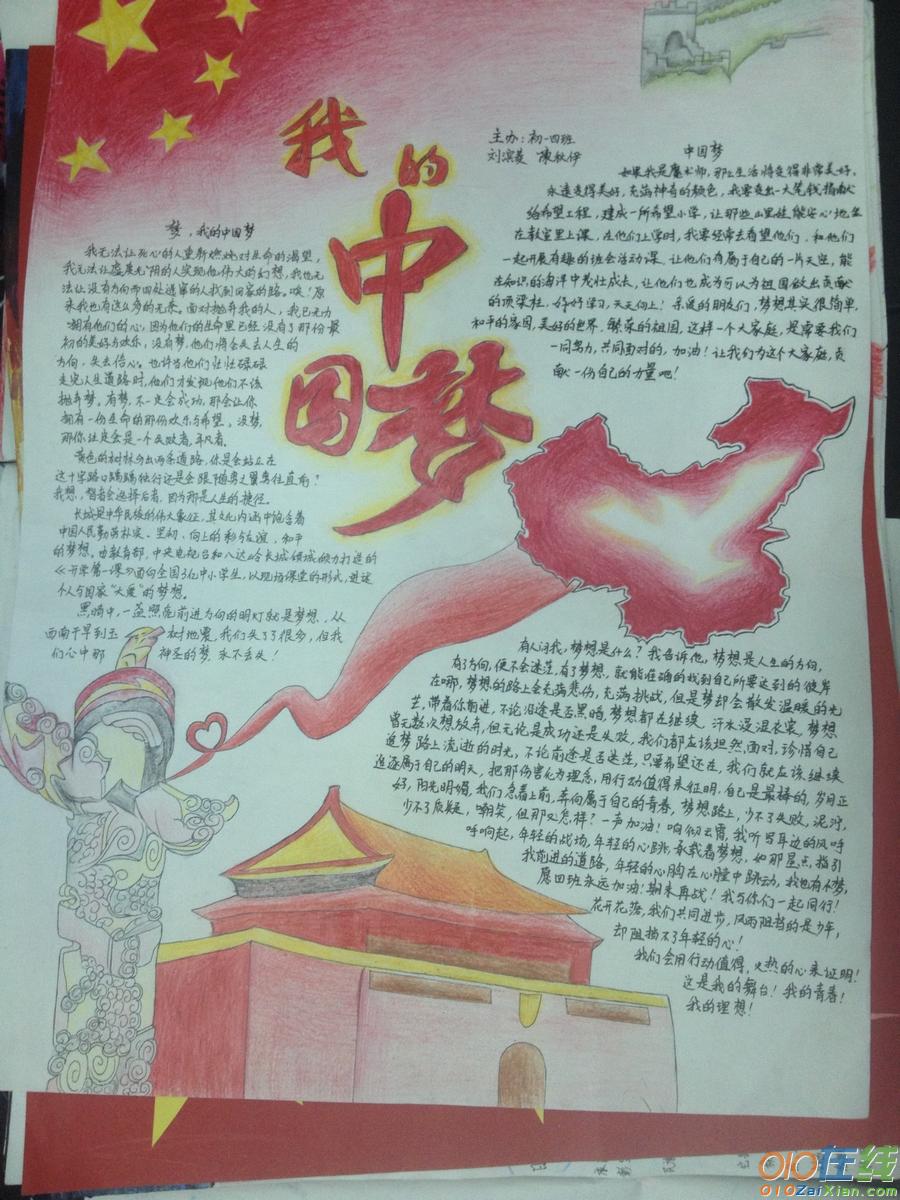 我的
中
国梦
主办：初一四班
刘滨菱 陈秋伊
梦，我的中国梦
我无法让死心的人重新燃烧对生命的渴望，
我无法让虚度光阴的人实现他伟大的幻想，我也无
法让没有方向而四处逃窜的人找到回家的路。唉！原
来我也有这么多的无奈。面对抛弃我的人，我已无力
拥有他们的心，因为他们的生命里已经没有了那份最
初的美好与欢乐，没有梦，他们将会失去人生的
方向，失去信心。也许当他们忙忙碌碌
走完人生道路时，他们才发现他们不该
抛弃梦。有梦，不一定会成功，那会让你
拥有一份生命的那份欢乐与希望。没梦，
那你注定会是一个失败者，平凡者。
黄色的树林分出两条道路，你是会站立在
这十字路口踽踽独行还是会跟随勇之翼勇往直前？
我想，智者会选择后者，因为那是人生的捷径。
长城是中华民族的伟大象征，其文化内涵中饱含着
中国人民勤劳朴实、坚韧、向上的和与友谊、和平
的梦想。由教育部，中央电视台和八达岭长城倾城倾力打造的
《开学第一课》面向全国3亿中小学生，以现场课堂的形式，进述
个人与国家“大爱”的梦想。
黑暗中，一盏照亮前进方向的明灯就是梦想，从
西南干旱到玉树地震，我们失了了很多，但我
们心中那神圣的梦，永不丢失！
中国梦
如果我是魔术师，那么生活将变得非常美好，
永远变得美好，充满神奇的颜色，我要变出一大笔钱捐献
给希望工程，建成一所希望小学，让那些山里娃能安心地坐
在教室里上课，在他们上学时，我要经常去看望他们，和他们
一起开展有趣的班会活动课，让他们有属于自己的一片天空，能
在知识的海洋中茁壮成长，让他们也成为可以为祖国做出贡献
的顶梁柱，好好学习，天天向上！亲爱的朋友们，梦想其实很简单，
和平的家园，美好的世界，繁荣的祖国，这样一个大家庭，是需要我们
一同努力，共同面对的，加油！让我们为这个大家庭，贡
献一份自己的力量吧！
有人问我，梦想是什么？我告诉他，梦想是人生的方向，
有了方向，便不会迷茫，有了梦想，就能准确的找到自己所要达到的彼岸
在哪，梦想的路上会充满悲伤，充满挑战，但是梦却会散发温暖的光
芒，带着你前进，不论沿途是否黑暗，梦想都在继续，汗水浸湿衣裳，梦想
曾无数次想放弃，但无论是成功还是失败，我们都应该坦然面对，珍惜自己
追梦路上流逝的时光，不论前途是否迷茫，只要希望还在，我们就应该继续
追逐属于自己的明天，把那伤害化为理念，用行动值得来证明，自己是最棒的，岁月正
好，阳光明媚，我们急着上前，奔向属于自己的青春，梦想路上，少不了失败，泥泞，
少不了质疑，嘲笑，但那又怎样？一声加油！响彻云霄，我听写耳边的风呼
呼响起，年轻的战场，年轻的心跳，承载着梦想，如那星点，指引
我前进的道路，年轻的心胸在心膛中跳动，我也有个梦，
愿四班永远加油！期末再战！我与你们一起同行！
花开花落，我们共同进步，风雨阻挡的是少年，
却阻挡不了年轻的心！
我们会用行动值得，火热的心来证明！
这是我的舞台！我的青春！
我的理想！
010在线
010ZaiXian.com